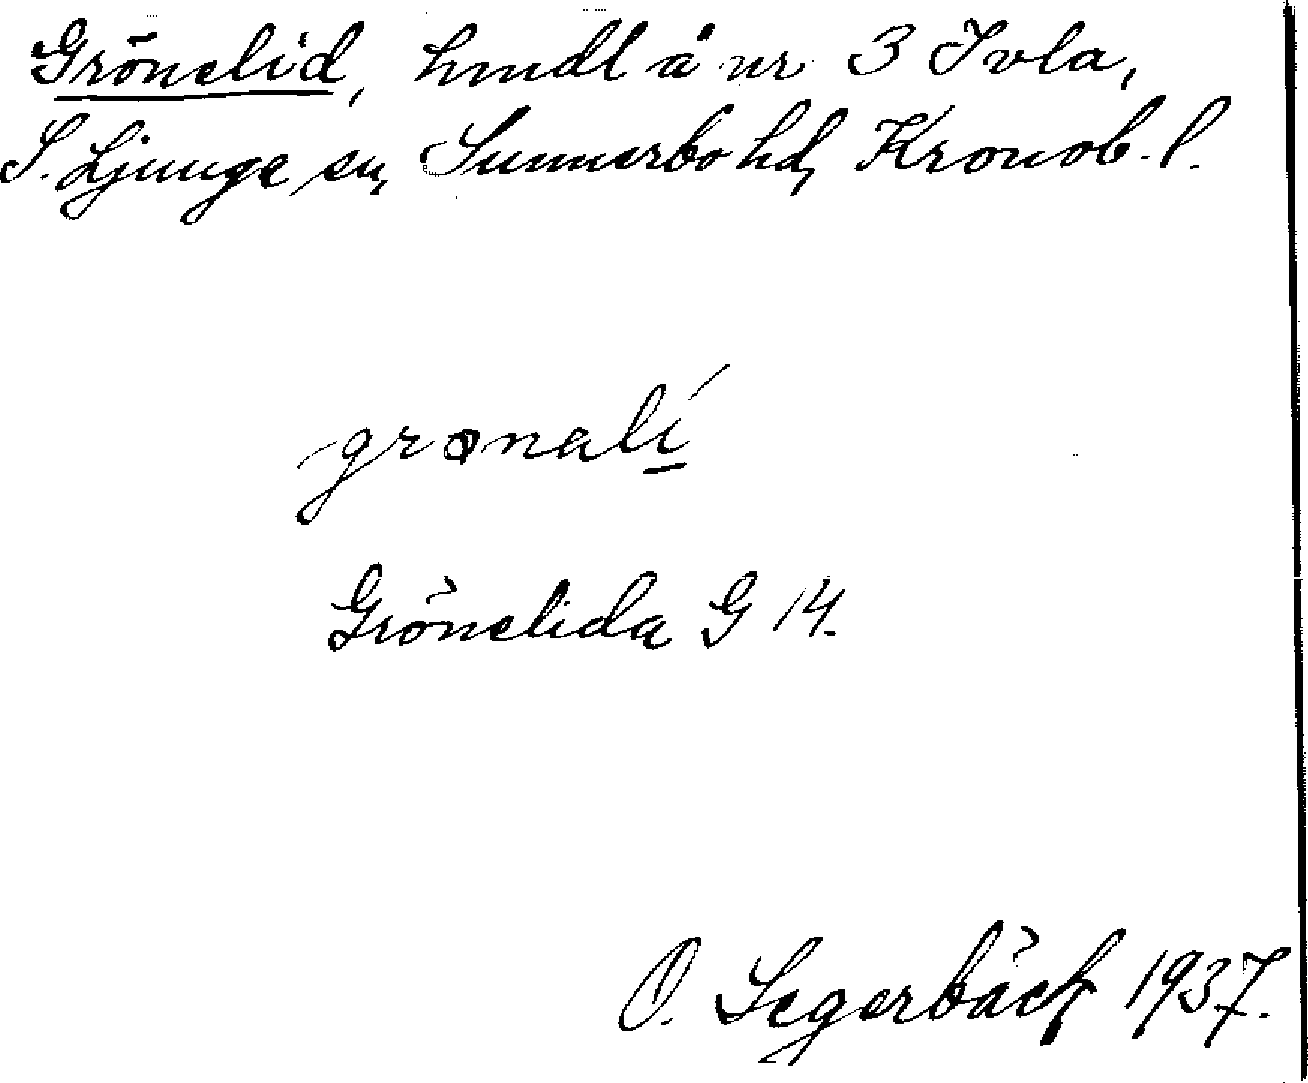 Grönelid, hmdl å nr 3 Ivla,
S. Ljunga sn, Sunnerbo hd, Kronob. l.
grønalí
Grönelida G 14.
O. Segerbäck 1937.